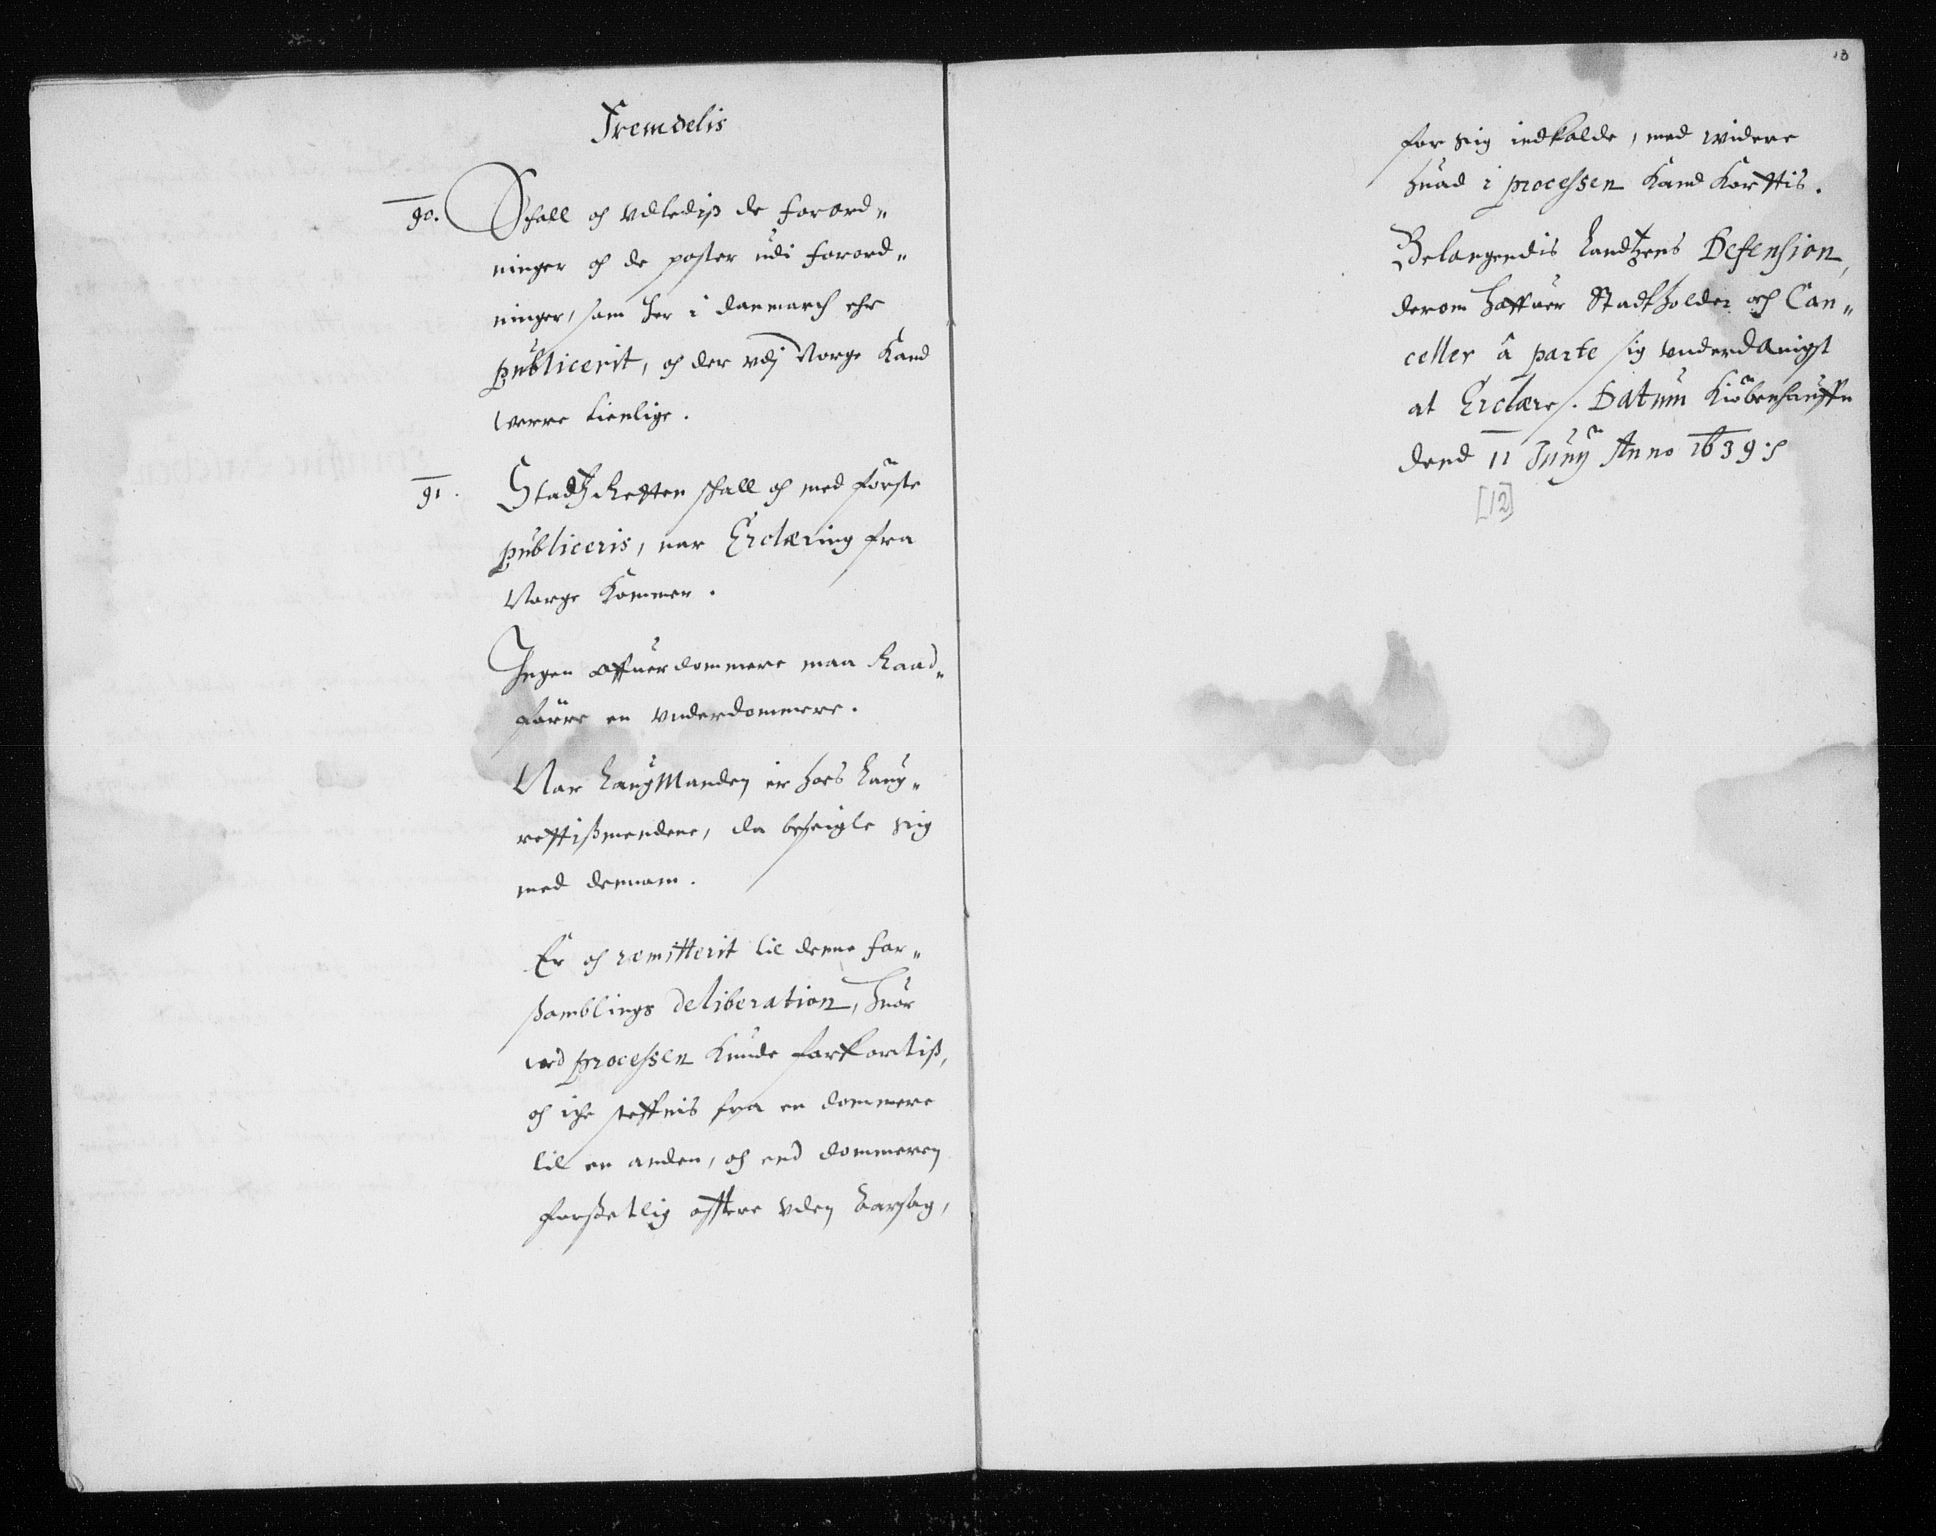 Fremdelis
90. Schall och vdlediß de forord-
ninger och de poster udi forord-
ninger, som her i danmarch ehr
publicerit, och der vdj Norge Kand
verre tienlige.
91. Stadtz Retten schall och med förste
publiceris, nar Erclæring fra
Norge Kommer.
Ingen offuerdommere maa Raad-
förre en vnderdommere.
Nar LaugManden er hoes Laug-
rettißmendene, da beseigle sig
med dennom.
Er och remitterit til denne for-
samblings deliberation, huor
ved processen Kunde forkortiß,
och iche steffnis fra en dommere
til en anden, och end dommeren
forsetlig offtere vden Aarsag,
13
for sig indkalde, med widere
huad i processen Kand Korttis.
Belangendis Landtzens Defension,
derom haffuer Stadtholder och Can-
celler â parte sig vnderdanigst
at Erclære. Datum Kiöbenhauffn
dend 11 Junij Anno 1639
[12]